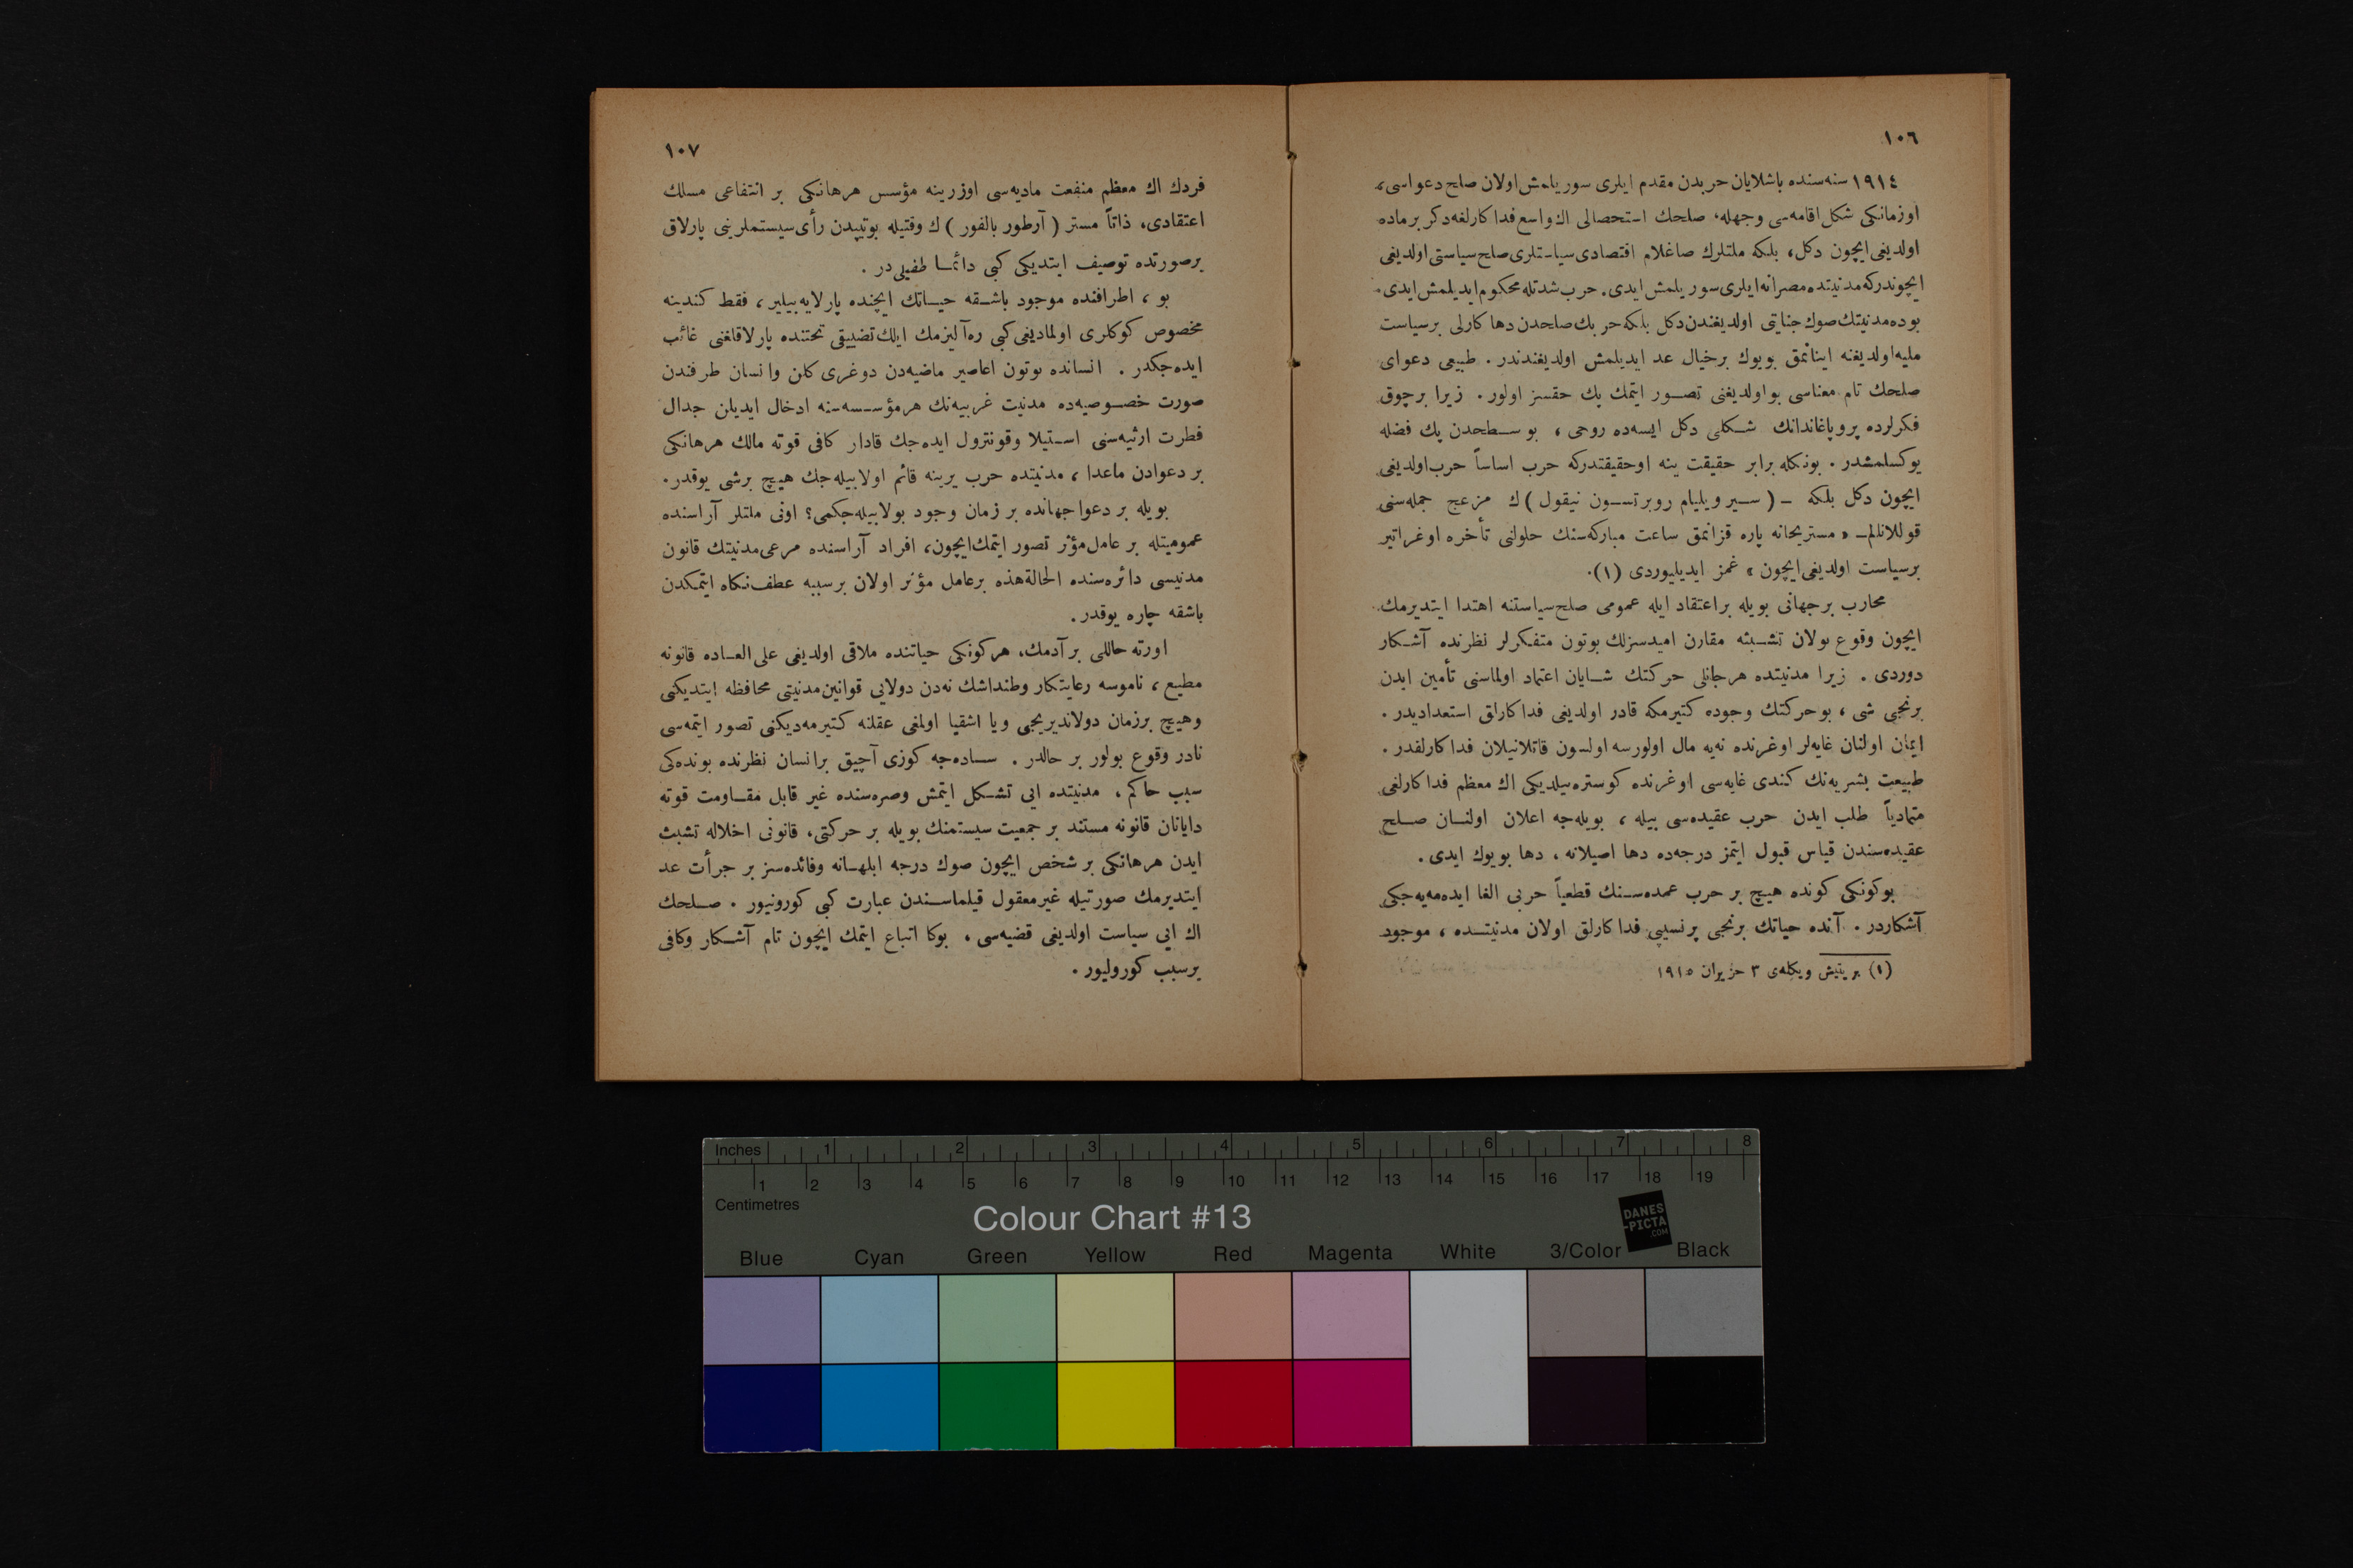 ١٠٦
١٩١٤ سنه‌سنده باشلایان حربدن مقدم ایلری سوریلمش اولان صلح دعواسی،
اوزمانکی شکل اقامه‌سی وجهله، صلحك استحصالی اك واسع فداكارلغه دکر برماده
اولدیغی ایچون دکل، بلکه ملتلرك صاغلام اقتصادی سیاستلری صلح سیاستی اولدیغی
ایچوندرکه مدنیتده مصرانه ایلری سوریلمش ایدی. حرب شدتله محکوم ایدیلمش ایدی.
بوده مدنیتك صوك جنایتی اولدیغندن دکل بلکه حربك صلحدن دها کارلی برسیاست
ملیه اولدیغنه اینانمق بویوك برخیال عد ایدیلمش اولدیغندندر. طبیعی دعوای
صلحك تام معناسی بو اولدیغنی تصور ایتمك پك حقسز اولور. زیرا برچوق
فکرلرده پروپاغاندانك شکلی دکل ایسه‌ده روحی، بو سطحدن پك فضله
یوکسلمشدر. بونکله برابر حقیقت ینه اوحقیقتدرکه حرب اساساً حرب اولدیغی
ایچون دکل بلکه – (سیر ویلیام روبرتسون نیقول)ك مزعج جمله‌سنی
قوللانالم – «مستریحانه پاره قزانمق ساعت مبارکه‌سنك حلولنی تأخره اوغراتیر
برسیاست اولدیغی ایچون» غمز ایدیلیوردی (١).
محارب برجهانی بویله براعتقاد ایله عمومی صلح سیاستنه اهتدا ایتدیرمك
ایچون وقوع بولان تشبثه مقارن امیدسزلك بوتون متفکرلر نظرنده آشکار
دوردی. زیرا مدنیتده هرجانلی حرکتك شایان اعتماد اولماسنی تأمین ایدن
برنجی شی، بوحرکتك وجوده کتیرمکه قادر اولدیغی فداکارلق استعدادیدر.
ایمان اولنان غایه‌لر اوغرنده نه‌یه مال اولورسه اولسون قاتلانیلان فداکارلقدر.
طبیعت بشریه‌نك کندی غایه‌سی اوغرنده کوستره‌بیلدیکی اك معظم فداکارلغی
متمادیاً طلب ایدن حرب عقیده‌سی بیله، بویله‌جه اعلان اولنان صلح
عقیده‌سندن قیاس قبول ایتمز درجه‌ده دها اصیلانه، دها بویوك ایدی.
بوکونکی کونده هیچ بر حرب عمده‌سنك قطعیاً حربی الغا ایده‌مه‌یه‌جکی
آشکاردر. آنده حیاتك برنجی پرنسیپی فداکارلق اولان مدنیتده، موجود
(١) بریتیش ویکلەی ٣ حزیران ١٩١٥
١٠٧
فردك اك معظم منفعت مادیه‌سی اوزرینه مؤسس هرهانکی بر انتفاعی مسلك
اعتقادی، ذاتاً مستر (آرطور بالفور)ك وقتیله بوتیپدن رأی سیستملرینی پارلاق
برصورتده توصیف ایتدیکی کبی دائما طفیلی‌در.
بو، اطرافنده موجود باشقه حیاتك ایچنده پارلایه‌بیلیر، فقط کندینه
مخصوص کوکلری اولمادیغی کبی ره‌آلیزمك ایلك تضییقی تحتنده پارلاقلغنی غائب
ایده‌جکدر. انسانده بوتون اعاصیر ماضیه‌دن دوغری کلن وانسان طرفندن
صورت خصوصیه‌ده مدنیت غربیه‌نك هرمؤسسه‌سنه ادخال ایدیلن جدال
فطرت ارثیه‌سنی استیلا وقونترول ایده‌جك قادار کافی قوته مالك هرهانکی
بر دعوادن ماعدا، مدنیتده حرب یرینه قائم اولابیله‌جك هیچ برشی یوقدر.
بویله بر دعوا جهانده بر زمان وجود بولابیله‌جکمی؟ اونی ملتلر آراسنده
عمومیتله بر عامل مؤثر تصور ایتمك ایچون، افراد آراسنده مرعی مدنیتك قانون
مدنیسی دائره‌سنده الحالة‌هذه برعامل مؤثر اولان برسببه عطف نکاه ایتمکدن
باشقه چاره یوقدر.
اورته حاللی برآدمك، هرکونکی حیاتنده ملاقی اولدیغی علی‌العاده قانونه
مطیع، ناموسه رعایتکار وطنداشك نه‌دن دولایی قوانین مدنیتی محافظه ایتدیکنی
وهیچ برزمان دولاندیریجی ویا اشقیا اولمغی عقلنه کتیرمه‌دیکنی تصور ایتمه‌سی
نادر وقوع بولور بر حالدر. ساده‌جه کوزی آچیق برانسان نظرنده بونده‌کی
سبب حاکم، مدنیتده ایی تشکل ایتمش وصره‌سنده غیر قابل مقاومت قوته
دایانان قانونه مستند بر جمعیت سیستمنك بویله بر حرکتی، قانونی اخلاله تشبث
ایدن هرهانکی بر شخص ایچون صوك درجه ابلهانه وفائده‌سز بر جرأت عد
ایتدیرمك صورتیله غیرمعقول قیلماسندن عبارت کبی کورونیور. صلحك
اك ایی سیاست اولدیغی قضیه‌سی، بوکا اتباع ایتمك ایچون تام آشکار وکافی
برسبب کورولیور.
Inches 1 2 3 4 5 6 7 8
1 2 3 4 5 6 7 8 9 10 11 12 13 14 15 16 17 18 19
Centimetres
Colour Chart #13
DANES
-PICTA
.COM
Blue Cyan Green Yellow Red Magenta White 3/Color Black